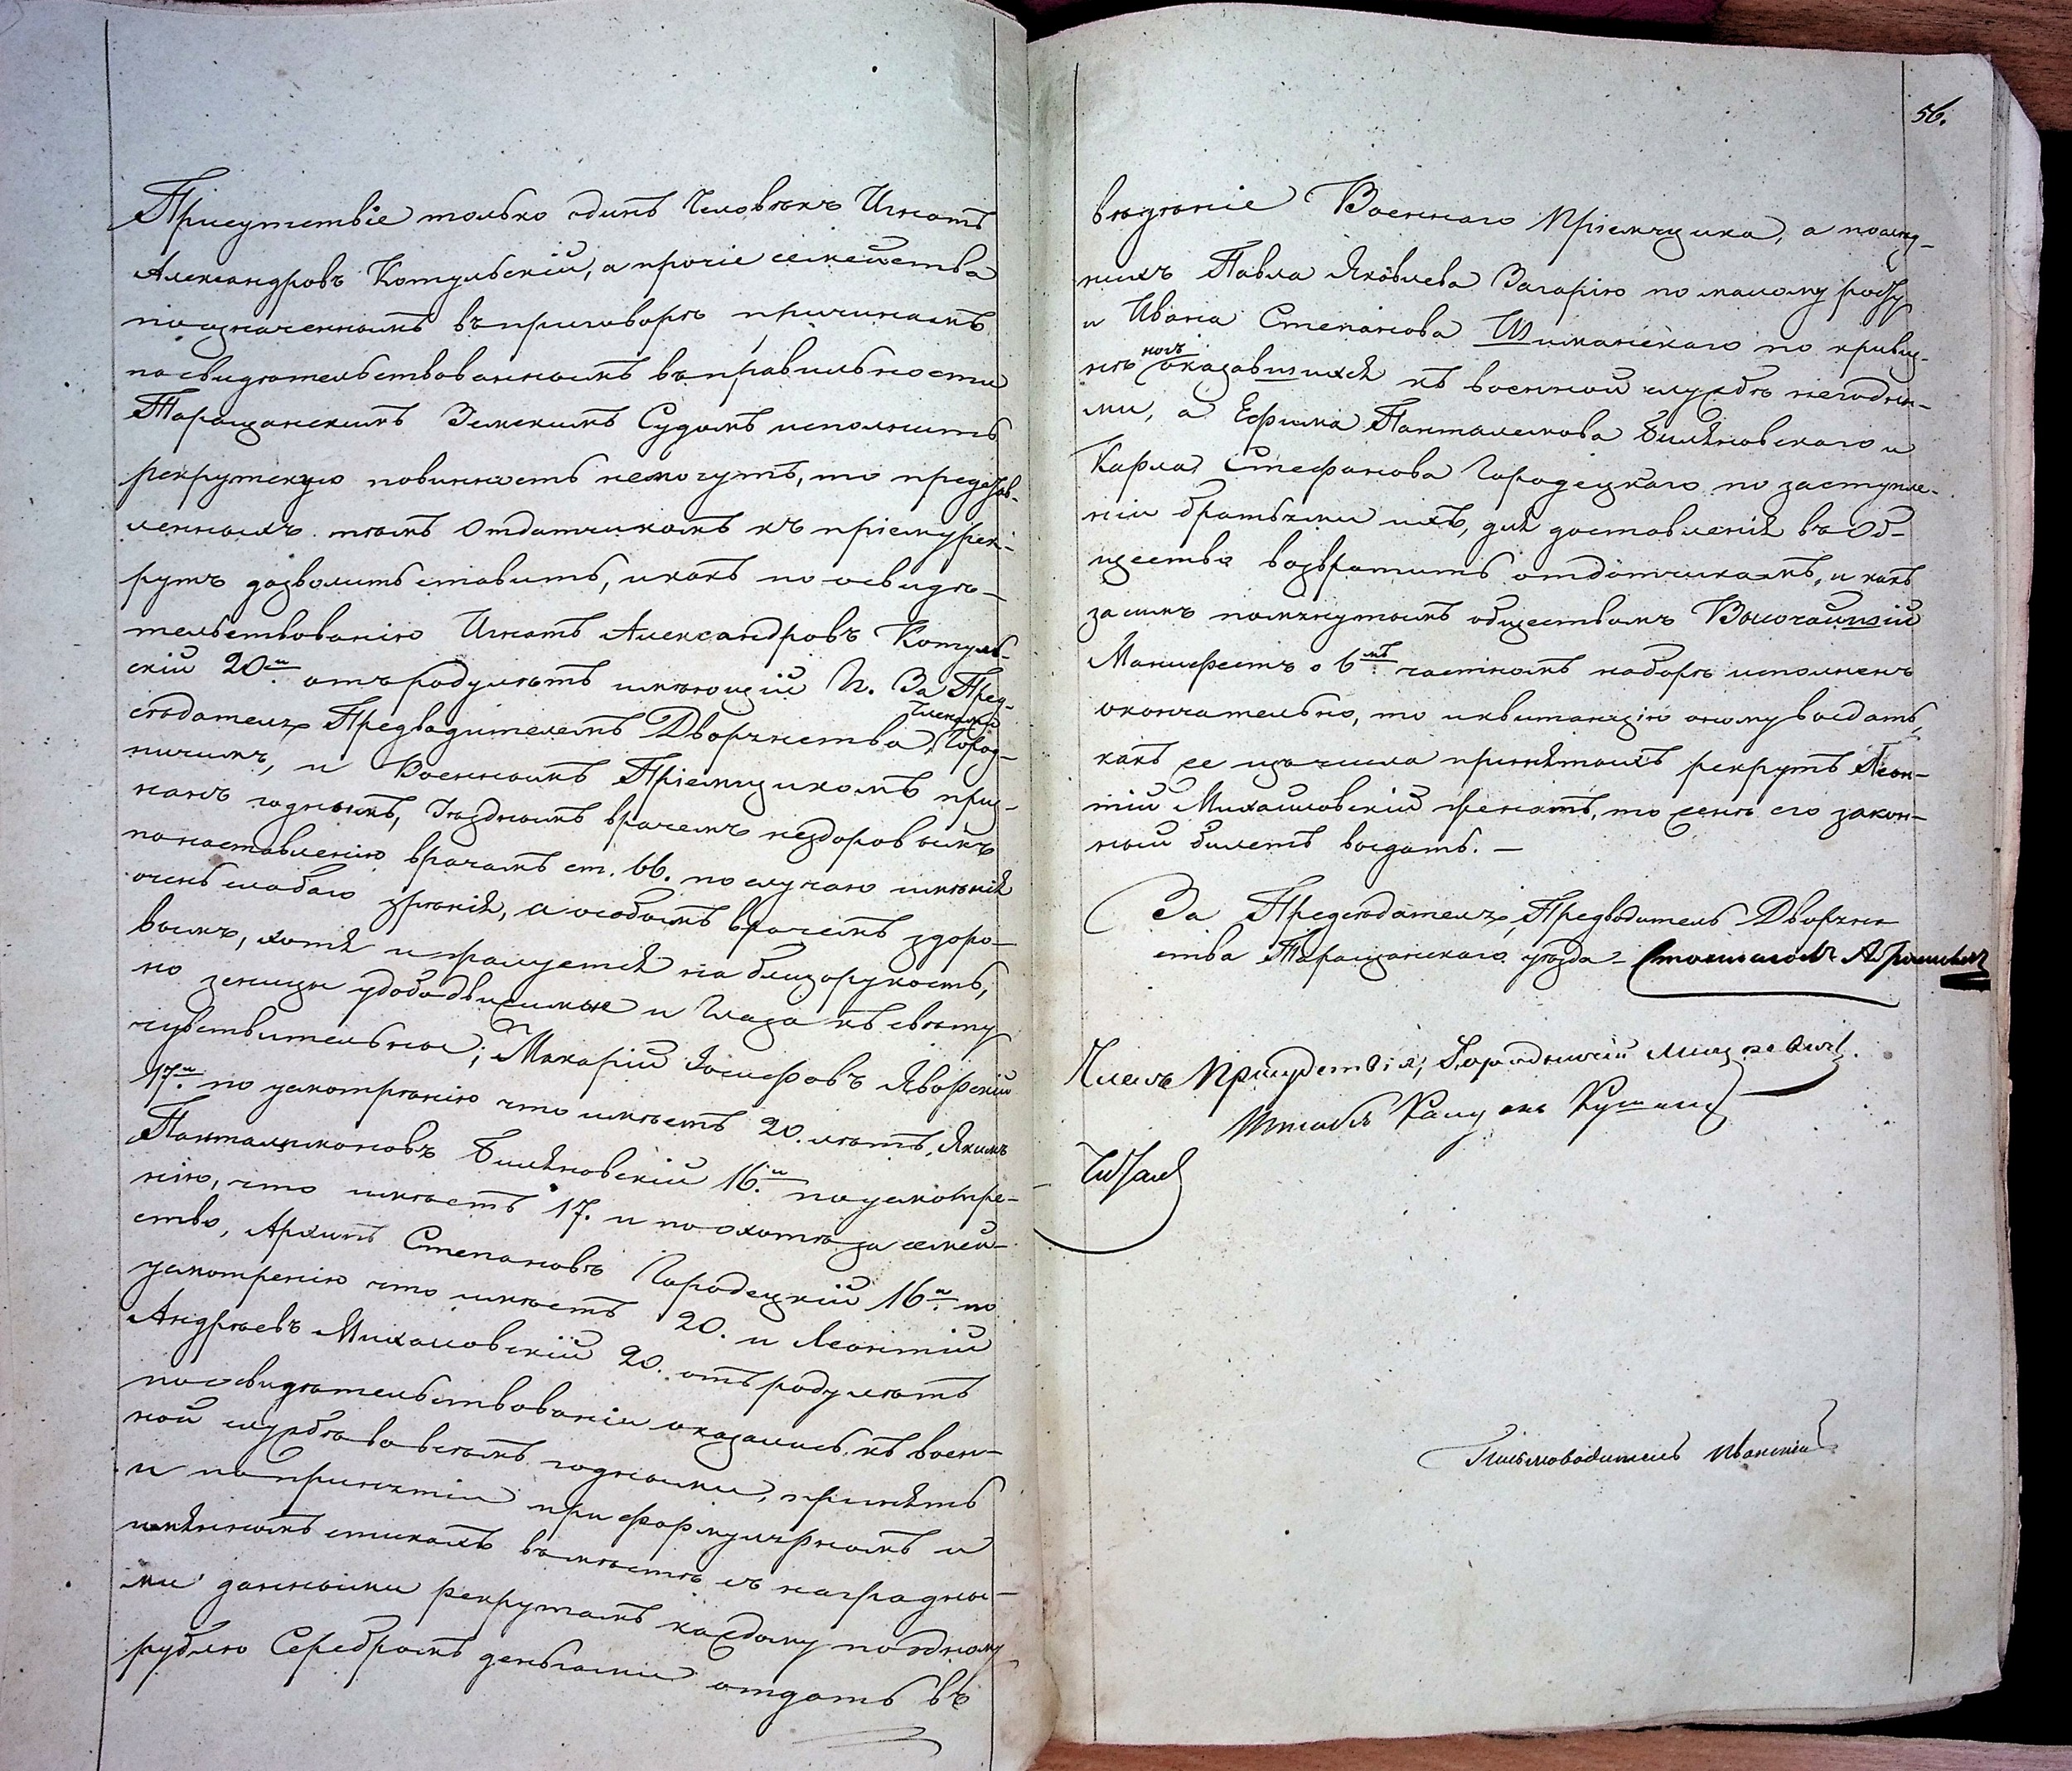 Присутствіе только одинъ Человѣкъ Игнатъ
Александровъ Котульскій, а прочіе семейства
по означеннымъ въ приговорѣ причинамъ
по свидѣтельствованнымъ въ правильности
Таращанскимъ Земскимъ Судомъ исполнить
рекрутскую повинность немогутъ, то представ-
ленныхъ тѣмъ Отдатчикомъ къ пріему рек-
рутъ дозволить ставить, и какъ по освидѣ-
тельствованію Игнатъ Александровъ Котуль-
скій 20и. отъ роду лѣтъ имѣющій И. За Пред-
сѣдателя Предводителемъ Дворянства, Членами Город-
ничимъ, и Военнымъ Пріемщикомъ приз-
нанъ годнымъ, Уѣзднымъ врачемъ нездоровымъ
по наставленію врачамъ ст. 66. по случаю имѣнія
очень слабаго зрѣнія, а особымъ врачемъ здоро-
вымъ, хотя и жалуется на близорукость,
но зеницы удободвижимые и глаза къ свѣту
чувствительные; Макарій Іосифовъ Яворскій
17и. по усмотрѣнію что имѣетъ 20. лѣтъ, Якимъ
Панталимоновъ Билѣновскій 16.и по усмотре-
нію, что имѣетъ 17. и по охотѣ за семей-
ство, Архипъ Степановъ Городецкій 16и. по
усмотренію что имѣетъ 20. и Леонтій
Андрѣевъ Михаловскій 20. отъ роду лѣтъ
по освидѣтельствованіи оказались къ воен-
ной службѣ во всемъ годными, принять
и по принятіи при формулярномъ и
имянномъ спискахъ вмѣстѣ съ наградны-
ми данными рекрутамъ каждому по одному
рублю Серебромъ деньгами отдать въ
56.
вѣденіе Военнаго Пріемщика, а послѣд-
нихъ Павла Яковлева Загарію по малому росту
и Ивана Степанова Шиманскаго по кривиз-
нѣ ногъ оказавшихся къ военной службѣ негодны-
ми, а Ефима Панталемова Билѣновскаго и
Карла Стефанова Городецкаго по заступле-
ніи братьями ихъ, для доставленія въ Об-
щества возвратить отдатчикамъ, и какъ
за симъ помянутымъ обществомъ Высочайшій
Манифестъ о 6мъ частномъ наборѣ исполненъ
окончательно, то и квитанцію оному выдать,
какъ же изъ числа принятыхъ рекрутъ Леон-
тій Михайловскій женатъ, то женѣ его закон-
ный билетъ выдать. —
За Предсѣдателя, Предводитель Дворян
ства Таращанскаго уѣзда
Членъ Присудствія, Городничій
Штабъ
Читалъ
Письмоводитель